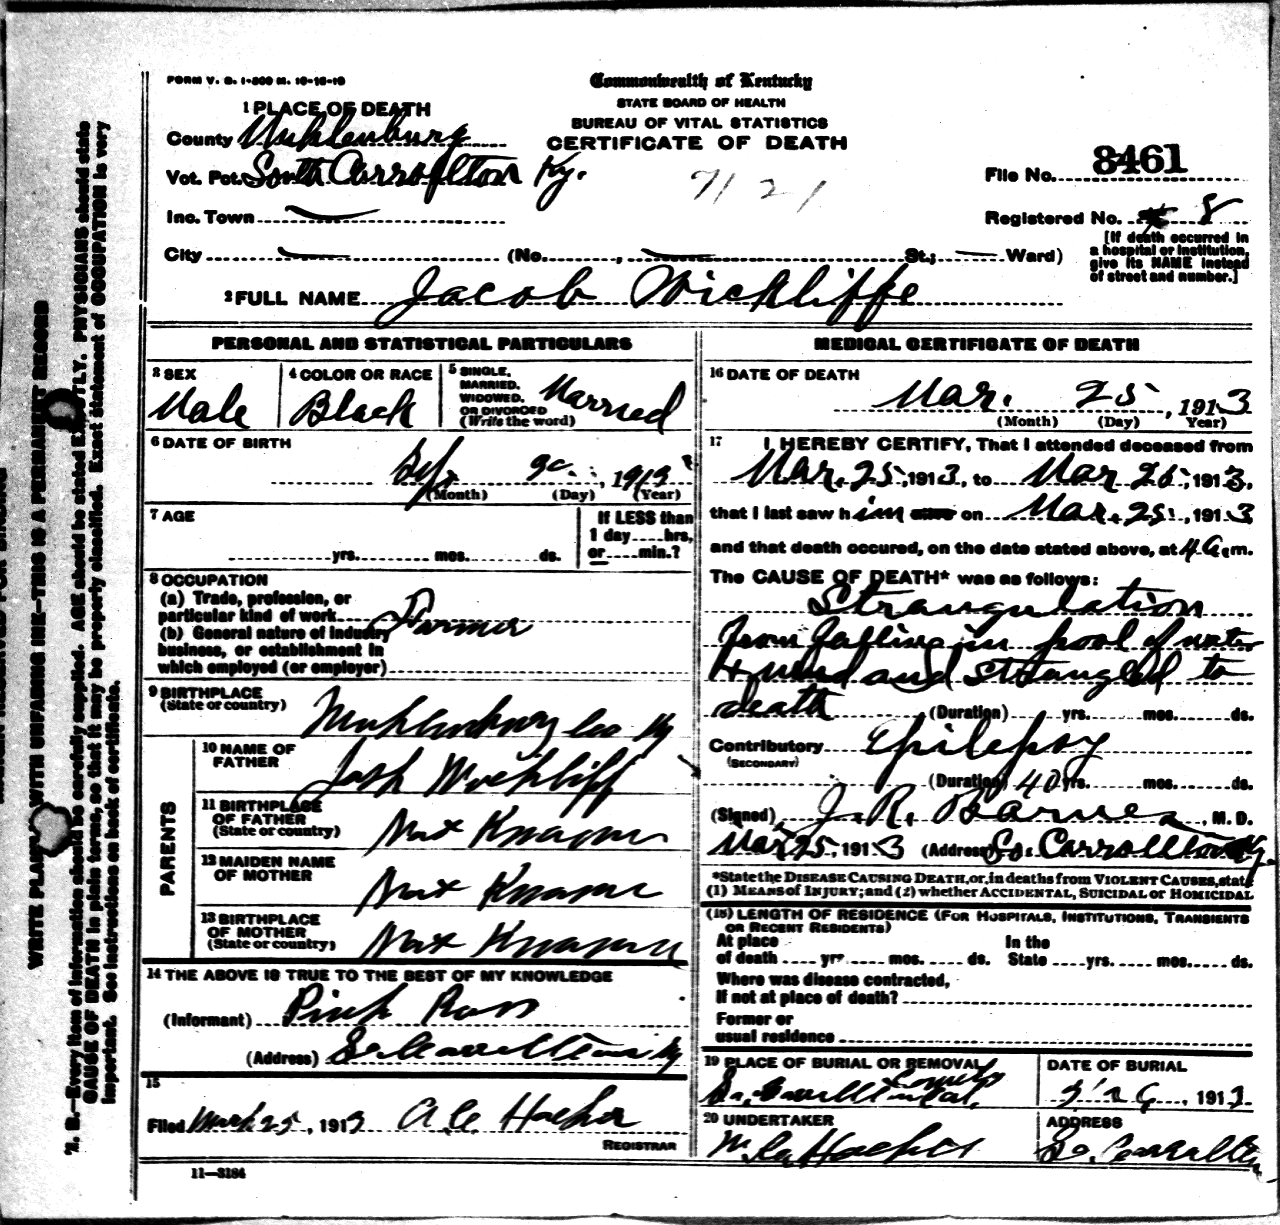 FORM V. S. 1-500 M. 10-16-10
Commonwealth of Kentucky
STATE BOARD OF HEALTH
BUREAU OF VITAL STATISTICS
CERTIFICATE OF DEATH
1 PLACE OF DEATH
County Muhlenburg
Vot. Pct. South Carrollton Ky.
Inc. Town
City (No. , St.; Ward)
7121
File No. 8461
Registered No. 8
[If death occurred in
a hospital or institution,
give its NAME instead
of street and number.]
2 FULL NAME Jacob Wickliffe
PERSONAL AND STATISTICAL PARTICULARS
3 SEX
Male
4 COLOR OR RACE
Black
5 SINGLE,
MARRIED,
WIDOWED,
OR DIVORCED
(Write the word)
Married
6 DATE OF BIRTH
, 191
(Month) (Day) (Year)
7 AGE
yrs. mos. ds.
If LESS than
1 day hrs,
or min.?
8 OCCUPATION
(a) Trade, profession, or
particular kind of work Farmer
(b) General nature of industry
business, or establishment in
which employed (or employer)
9 BIRTHPLACE
(State or country)
Muhlenburg Coo Ky
PARENTS
10 NAME OF
FATHER
Josh Wickliff
11 BIRTHPLACE
OF FATHER
(State or country)
Not Known
12 MAIDEN NAME
OF MOTHER
Not Known
13 BIRTHPLACE
OF MOTHER
(State or country)
Not Known
14 THE ABOVE IS TRUE TO THE BEST OF MY KNOWLEDGE
(Informant) Pink Ross
(Address) So Carrollton Ky
15
Filed March 25, 1913
REGISTRAR
11—3184
MEDICAL CERTIFICATE OF DEATH
16 DATE OF DEATH
Mar. 25, 1913
(Month) (Day) Year)
17 I HEREBY CERTIFY, That I attended deceased from
Mar. 25, 1913, to Mar 25, 1913,
that I last saw him alive on Mar. 25, 1913
and that death occured, on the date stated above, at 4 a m.
The CAUSE OF DEATH* was as follows:
Strangulation
from falling in pool of water
& mud and strangled to
death (Duration) yrs. mos. ds.
Contributory Epilepsy
(SECONDARY)
(Duration) 40 yrs. mos. ds.
(Signed) J. R. Barnes, M. D.
Mar 25, 1913 (Address) So Carrollton Ky.
*State the DISEASE CAUSING DEATH, or, in deaths from VIOLENT CAUSES, state
(1) MEANS OF INJURY; and (2) whether ACCIDENTAL, SUICIDAL or HOMICIDAL
(18) LENGTH OF RESIDENCE (FOR HOSPITALS, INSTITUTIONS, TRANSIENTS
OR RECENT RESIDENTS)
At place In the
of death yrs. mos. ds. State yrs. mos. ds.
Where was disease contracted,
If not at place of death?
Former or
usual residence
19 PLACE OF BURIAL OR REMOVAL
So. Carrollton
DATE OF BURIAL
3/26, 1913
20 UNDERTAKER
ADDRESS
So. Carrollton
WRITE PLAINLY WITH UNFADING INK—THIS IS A PERMANENT RECORD
N. B.—Every item of information should be carefully supplied. AGE should be stated EXACTLY. PHYSICIANS should state
CAUSE OF DEATH in plain terms, so that it may be properly classified. Exact statement of OCCUPATION is very
important. See instructions on back of certificate.